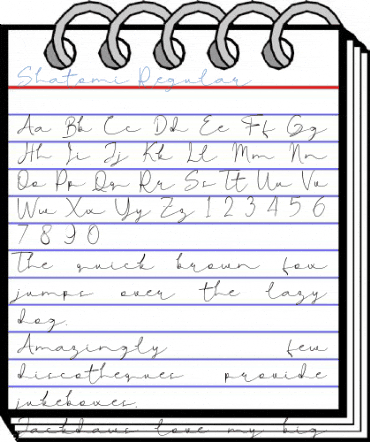 Shatomi Regular
Aa Bb Cc Dd Ee Ff Gg
Hh Ii Jj Kk Ll Mm Nn
Oo Pp Qq Rr Ss Tt Uu Vv
Ww Xx Yy Zz 1 2 3 4 5 6
7 8 9 0
The quick brown fox
jumps over the lazy
dog.
Amazingly few
discotheques provide
jukeboxes.
Jackdaws love my big